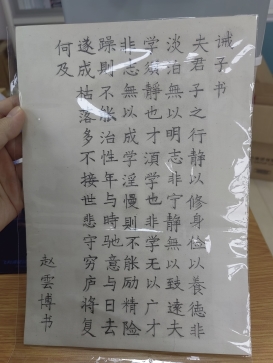 诫子书
夫君子之行静以修身俭以養德非
淡泊無以明志非宁静無以致遠夫
学須静也才須学也非学无以广才
非志無以成学淫慢则不能励精险
躁则不能治性年与時驰意与日去
遂成枯落多不接世悲守穷庐将复
何及
赵雲博书